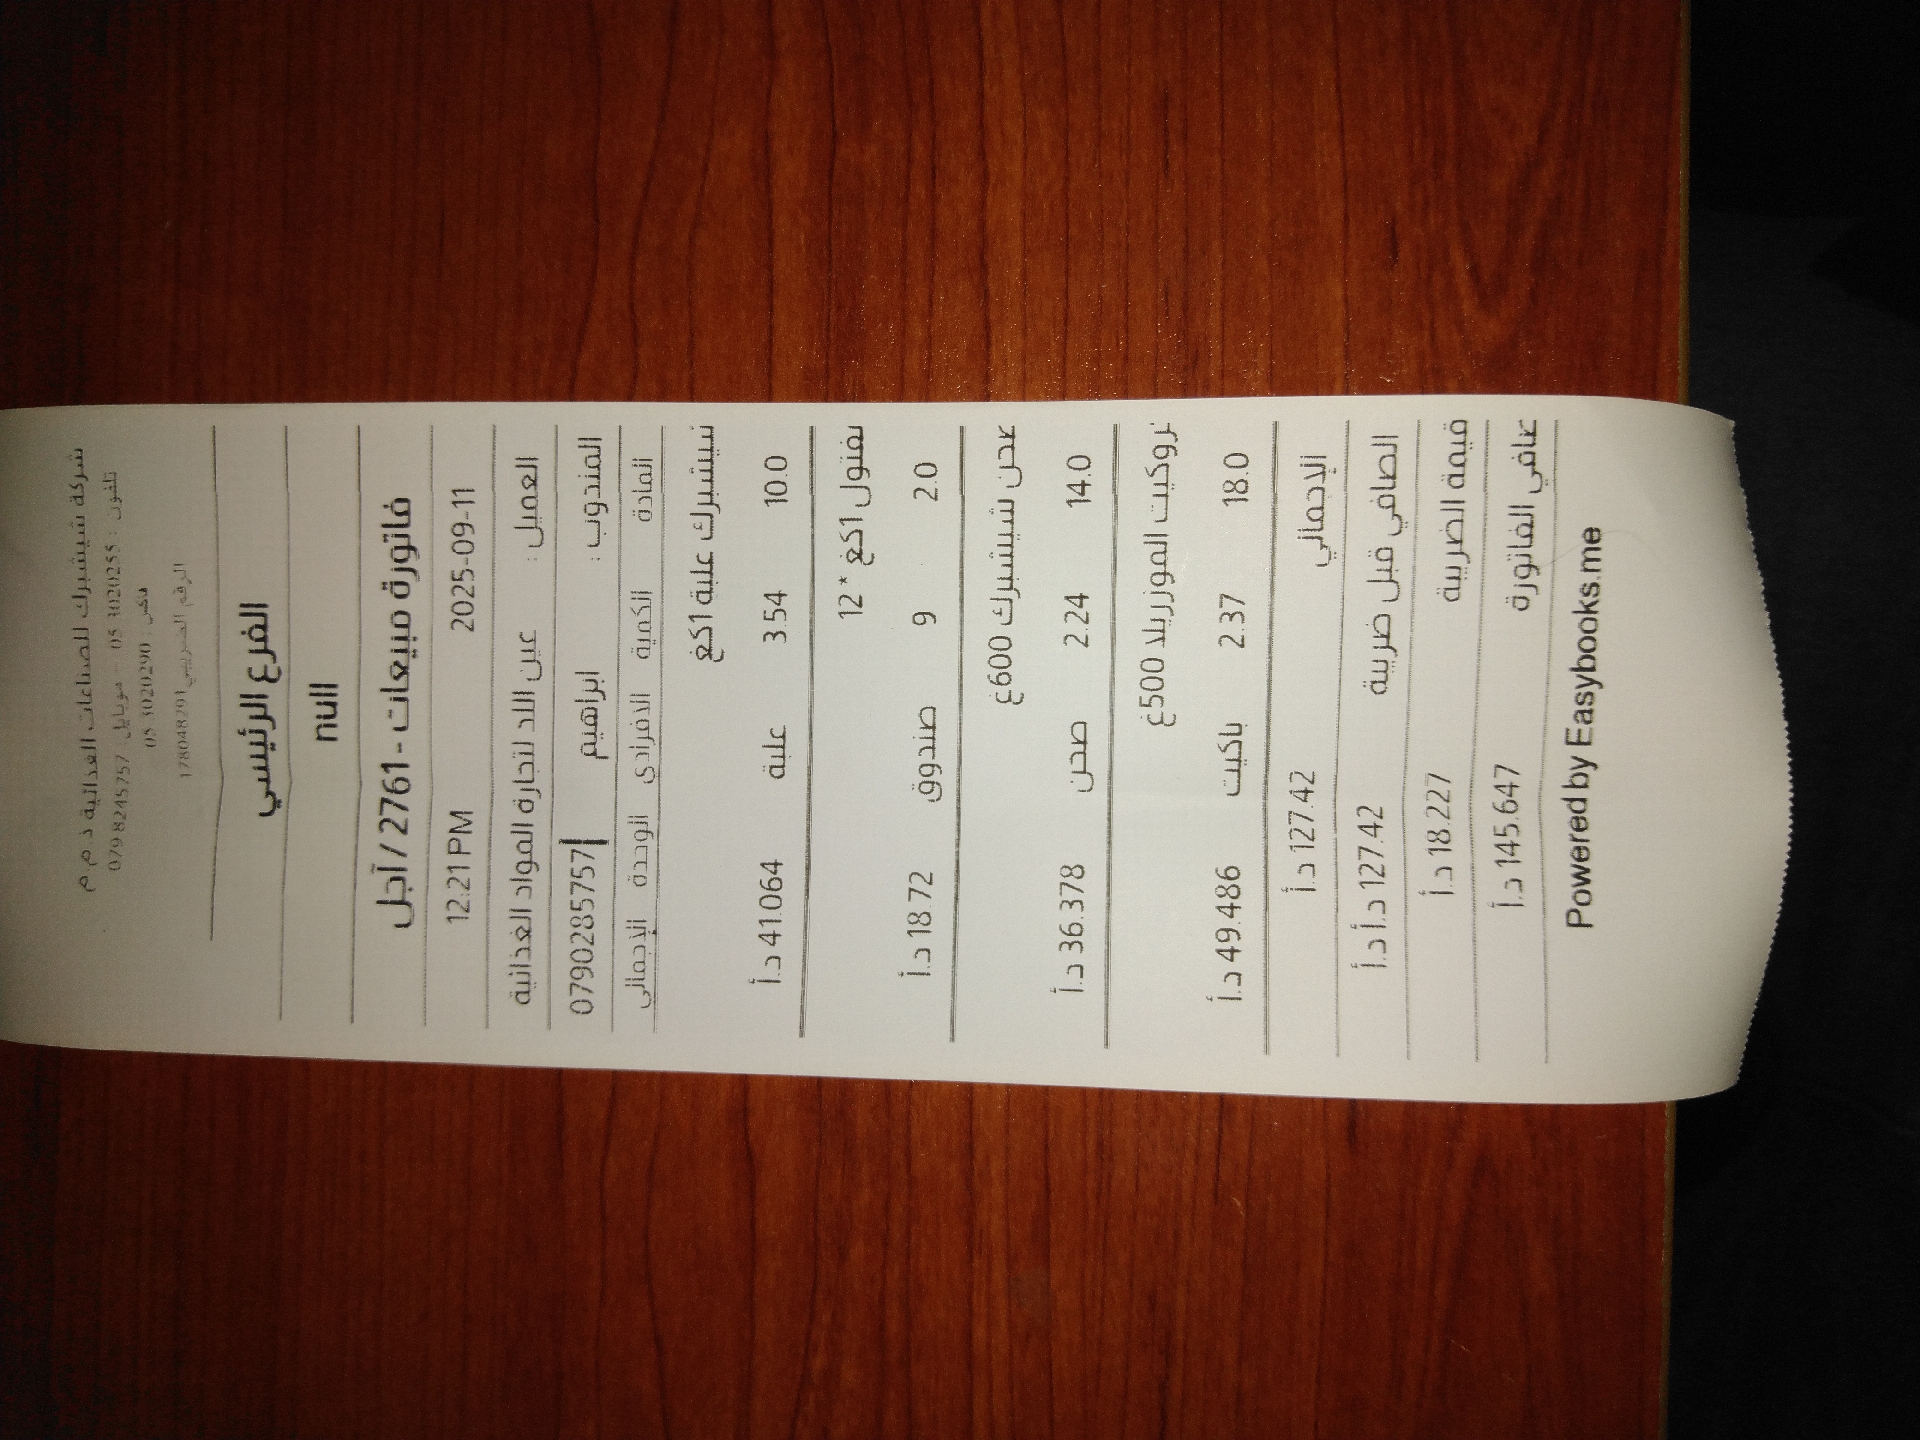 شركة شيشبرك للصناعات الغذائية ذ.م.م
تلفون : 3020255 05 - موبايل : 8245757 079
فاكس : 3020290 05
الرقم الضريبي
الفرع الرئيسي
null
فاتورة مبيعات - 2761 / آجل
2025-09-11 12:21 PM
العميل : عين اللد لتجارة المواد الغذائية
المندوب : ابراهيم 0790285757
المادة الكمية الافرادي الوحدة الإجمالي
شيشبرك علبة 1كغ
10.0 3.54 علبة 41.064 د.أ
مفتول 1كغ *12
2.0 9 صندوق 18.72 د.أ
صحن شيشبرك 600غ
14.0 2.24 صحن 36.378 د.أ
كروكيت الموزريلا 500غ
18.0 2.37 باكيت 49.486 د.أ
الإجمالي 127.42 د.أ
الصافي قبل ضريبة 127.42 د.أ د.أ
قيمة الضريبة 18.227 د.أ
صافي الفاتورة 145.647 د.أ
Powered by Easybooks.me